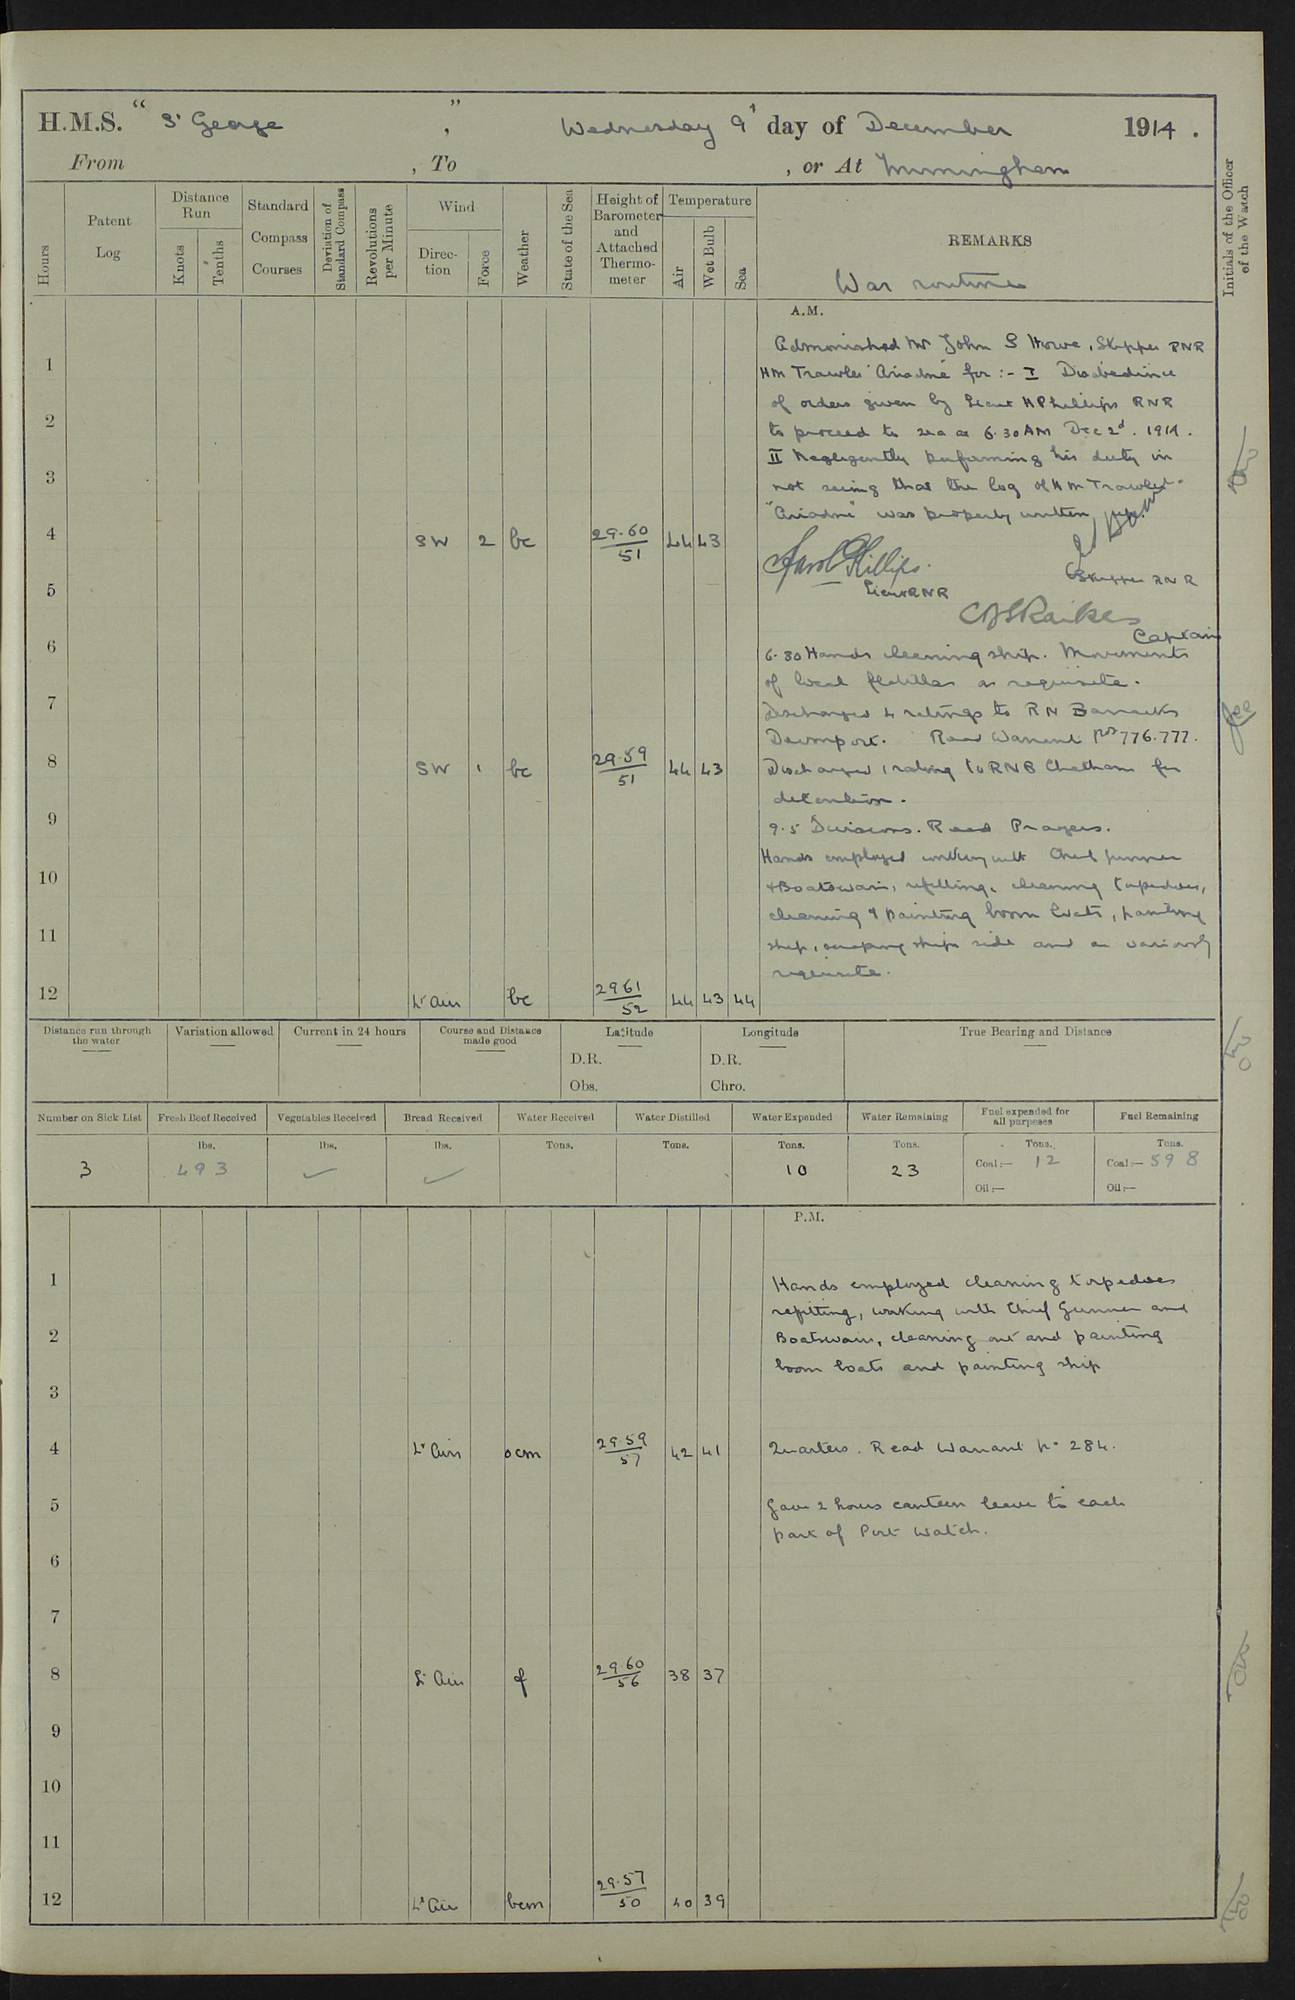 H.M.S. " St George " , Wednesday 9th day of December 1914 .
From , To , or At Immingham
Hours
Patent Log
Distance Run
Knots
Tenths
Standard Compass Courses
Deviation of Standard Compass
Revolutions per Minute
Wind
Direc-tion
Force
Weather
State of the Sea
Height of Barometer and Attached Thermo-meter
Temperature
Air
Wet Bulb
Sea
REMARKS
War routine
Initials of the Officer of the Watch
A.M.
Admonished Mr John S Howe, Skipper RNR
1
HM Trawler "Ariadne" for :- I Disobedience
of orders given by Lieut H Phillips RNR
2
to proceed to sea at 6.30 AM Dec 2d. 1914.
II Negligently performing his duty in
3
not seeing that the log of HM Trawler
"Ariadne" was properly written up.
4 SW 2 bc 29.60/51 44 43
Phillips.
Skipper RNR
5
Lieut RNR
Raikes
Captain
6
6.30 Hands cleaning ship. Movements
of local flotillas as requisite.
7
Discharged 4 ratings to RN Barracks
Devonport. Read Warrant Nos 776.777.
8 SW 1 bc 29.59/51 44 43
Discharged 1 rating to RNB Chatham for
detention.
9
9.5 Divisions. Read Prayers.
Hands employed working with Chief Gunner
10
& Boatswain, refitting, cleaning torpedoes,
cleaning & painting boom boats, painting
11
ship, scraping ships side and as variously
requisite.
12 Lt Airs bc 29 61/52 44 43 44
Distance run through the water
Variation allowed
Current in 24 hours
Course and Distance made good
Latitude
D.R.
Obs.
Longitude
D.R.
Chro.
True Bearing and Distance
Number on Sick List
Fresh Beef Received
Vegetables Received
Bread Received
Water Received
Water Distilled
Water Expended
Water Remaining
Fuel expended for all purposes
Fuel Remaining
lbs. lbs. lbs. Tons. Tons. Tons. Tons. Tons. Tons.
3 493 ✓ ✓ 10 23 Coal:— 12 Coal:— 598
Oil:— Oil:—
P.M.
1
Hands employed cleaning torpedoes
refitting, working with Chief Gunner and
2
Boatswain, cleaning out and painting
boom boats and painting ship
3
4 Lt Airs ocm 29.59/57 42 41 Quarters. Read Warrant No 284.
5
Gave 2 hours canteen leave to each
part of Port Watch.
6
7
8 Lt Airs f 29.60/56 38 37
9
10
11
12 Lt Airs bcm 29.57/50 40 39